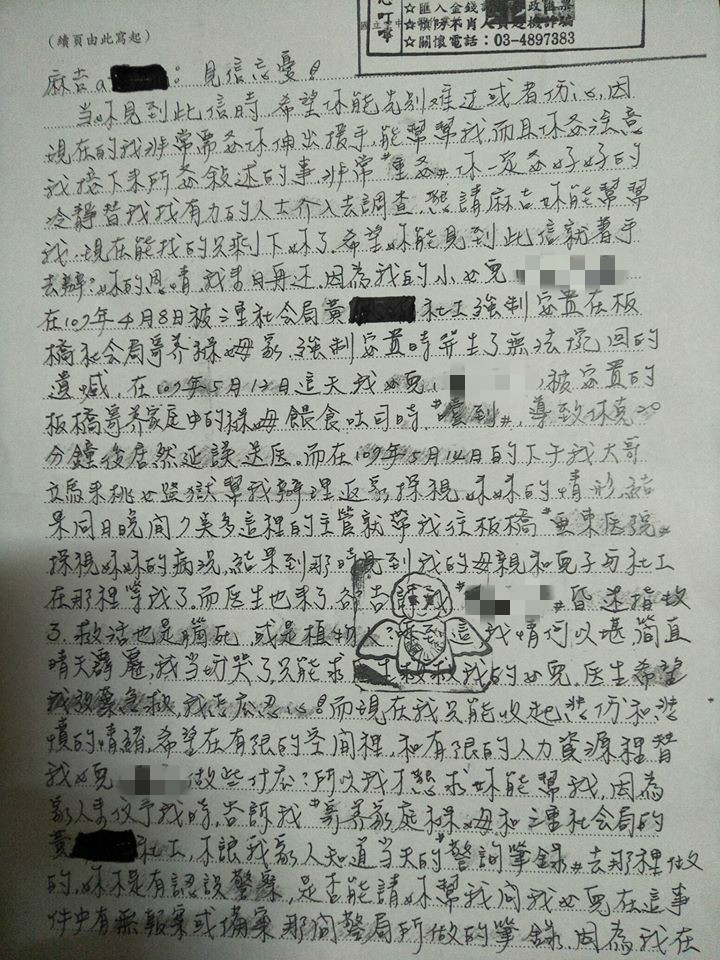 ☆匯入金錢
☆慎防不肖人
☆關懷電話：03-4897383
叮嚀
（續頁由此寫起）
麻吉a：見信忘憂！
當妳見到此信時希望妳能先別難过或者伤心,因
現在的我非常需要妳伸出援手,能幫幫我,而且妳要注意
我接下来所要敘述的事,非常"重要"妳一定要好好的
冷靜替我找有力的人士介入去調查,懇請麻吉妳能幫幫
我,現在能找的只剩下妳了,希望妳能見到此信就著手
去辦,妳的恩情我来日再还,因為我的小女兒
在107年4月8日被三重社会局黃社工強制安置在板
橋社会局寄养褓母家,強制安置時發生了無法挽回的
遺憾,在107年5月12日這天我女兒,被安置的
板橋寄养家庭中的褓母餵食吐司時"噎到",導致休克20
分鐘後居然延誤送医,而在107年5月14日的下午我大哥
立馬来桃女監獄幫我辦理返家探視妹妹的情形,結
果同日晚間7点多這裡的主管就帶我往板橋"亜東医院"
探視妹妹的病況,結果到那時見到我的母親和兒子与社工
在那裡等我了,而医生也来了,告訴我""昏迷指数
3,救活也是腦死,或是植物人?聽到這,我情何以堪,簡直
晴天霹靂,我当場哭了,只能求医生救救我的女兒,医生希望
我放棄急救,我怎麼忍心!而現在我只能收起悲伤和悲
憤的情緒,希望在有限的空間裡,和有限的人力資源裡替
我女兒做些什麼?所以我才想求妳能幫我,因為
家人来反予我時,告訴我"寄养家庭褓母和三重社会局的
黃社工,不讓我家人知道当天的"警詢筆錄"去那裡做
的,妳不是有認識警察,是否能請妳幫我問我女兒在這事
件中有無報案或備案那間警局所做的筆錄,因為我在